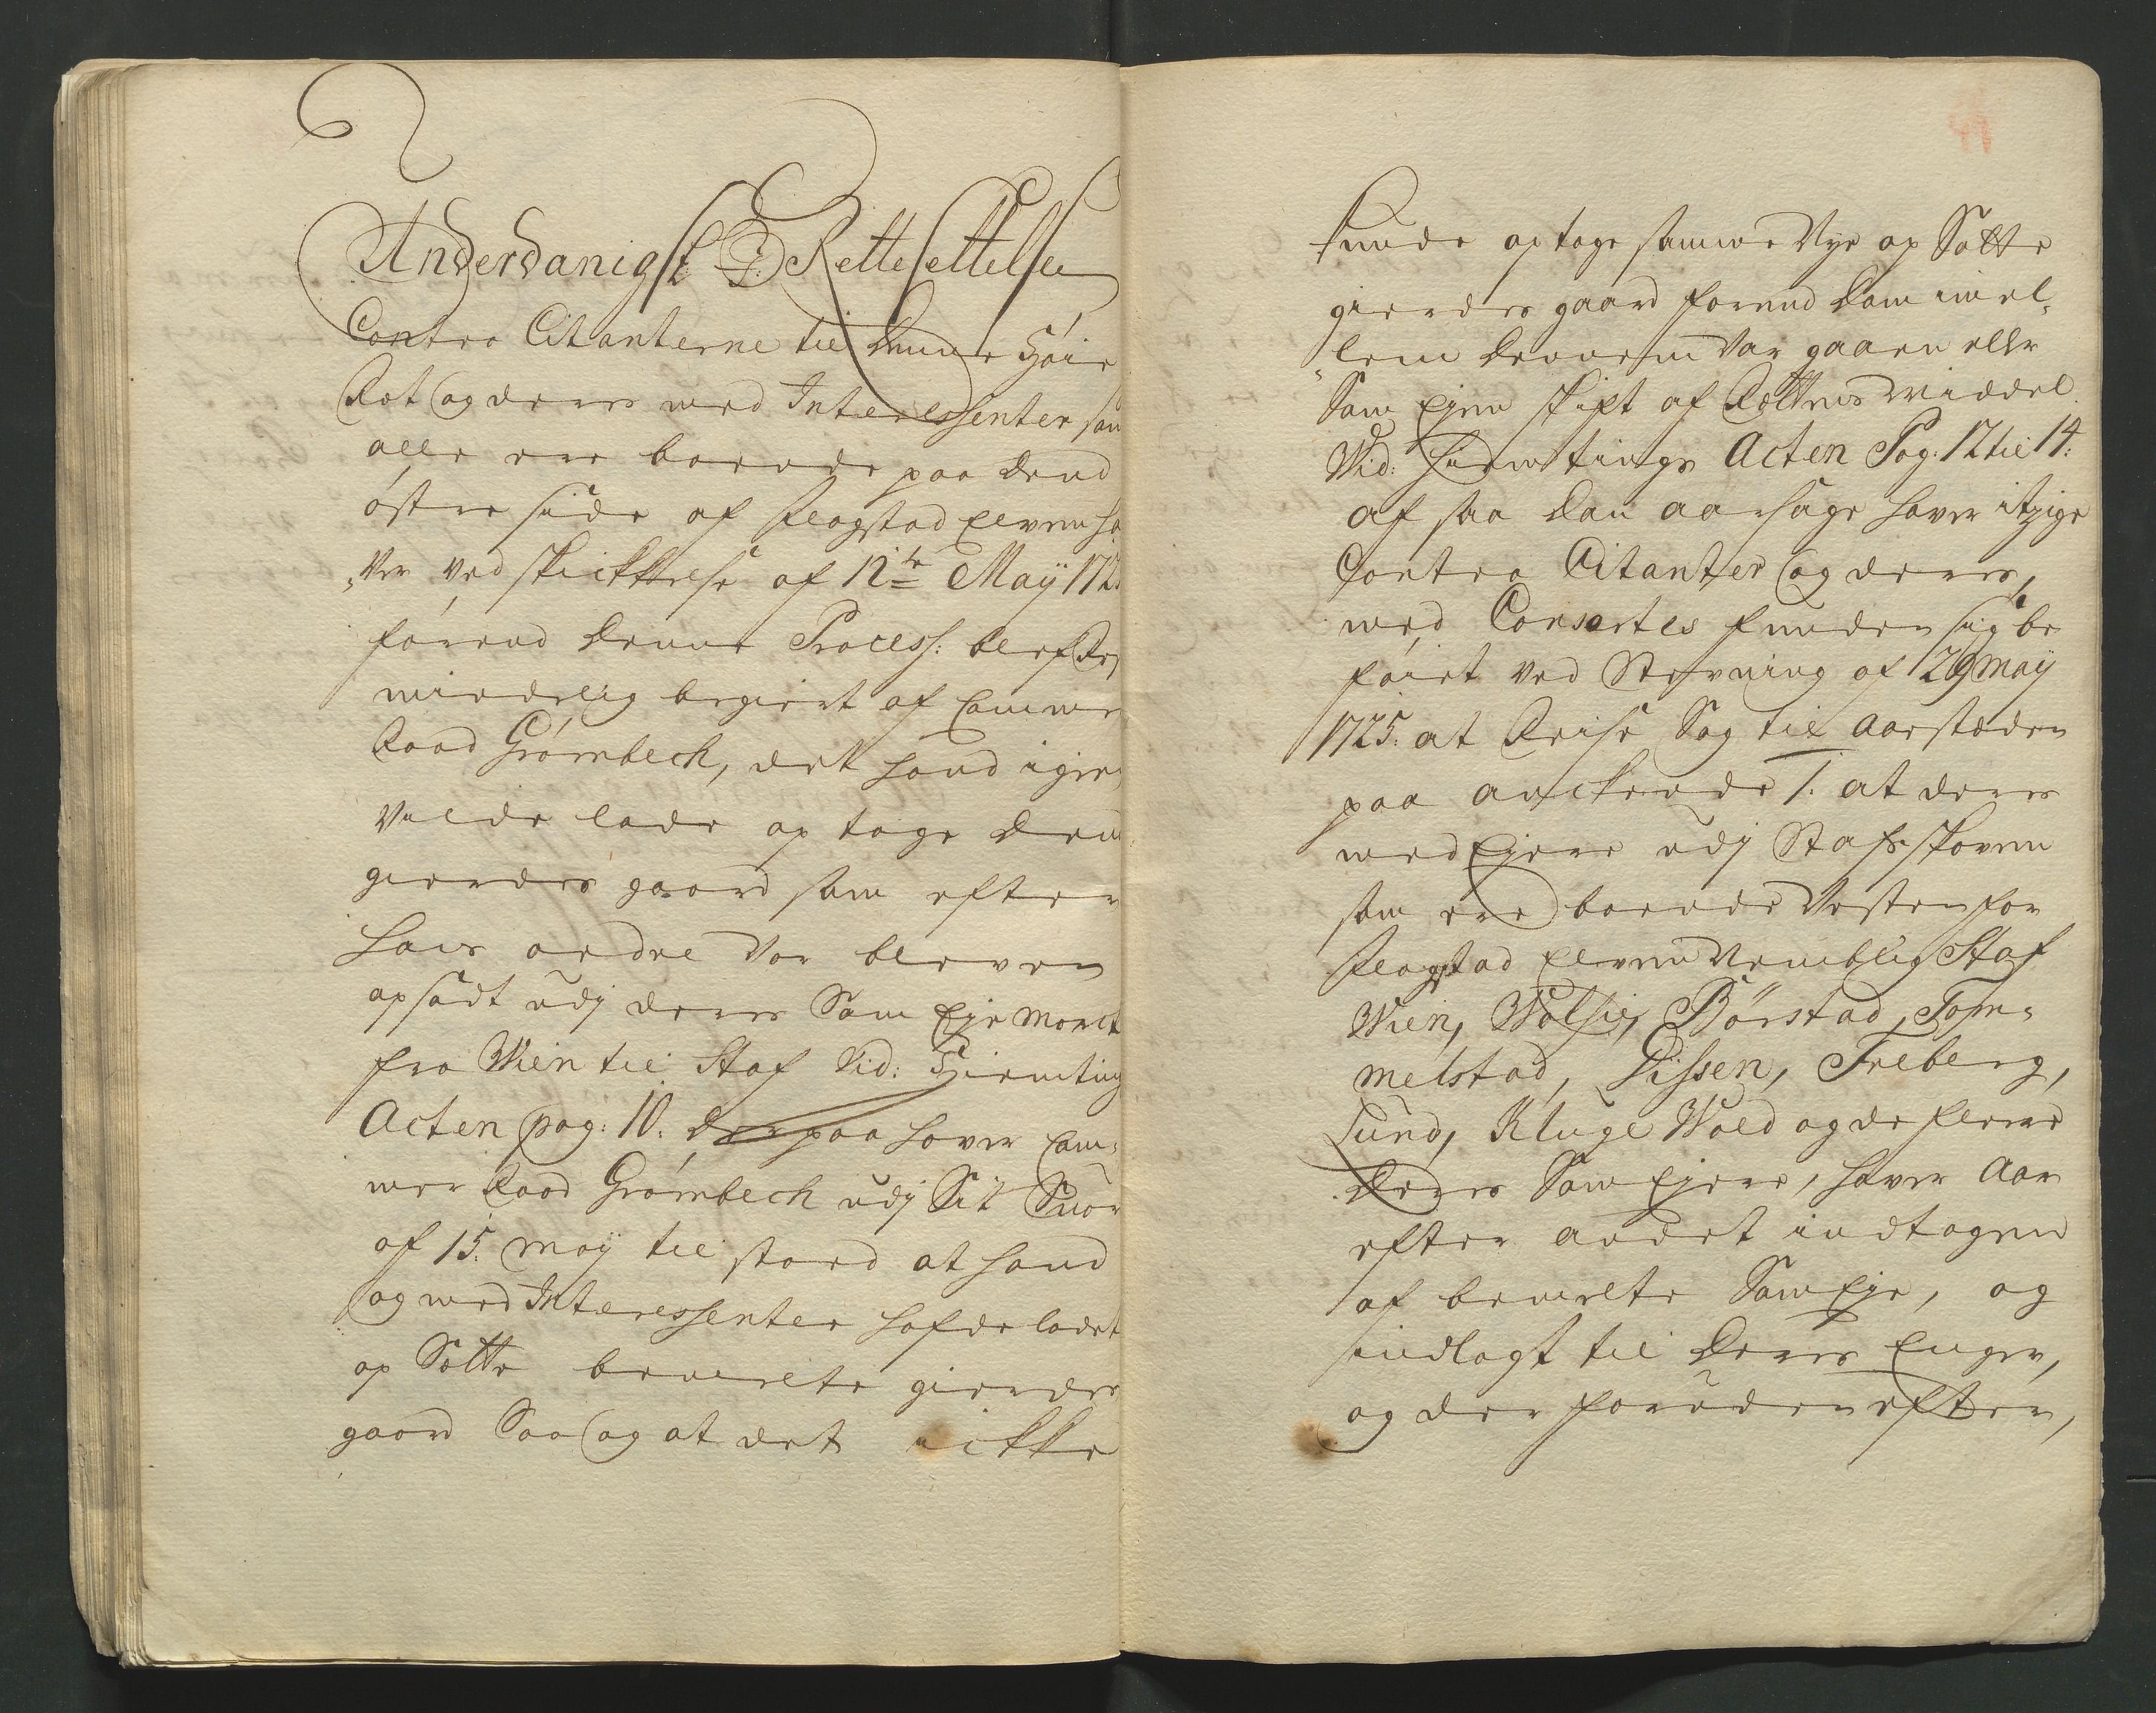 Underdanigst I Rettesettelse
Contra Citanterne til denne Høie
Ret og deres med Interessenter som
alle ere boende paa dend
østre side af flagstad Elven ha
„ver ved skickkelse af 12te Maÿ 172
førend denne Process: blef De
mindelig begiert af Camme
Raad Grømbech, det hand igien
vilde lade op tage den
gierdes gaard som efter
hans ordre var bleven
opsadt udj deres Sam Eje march
fra Wien til Staf Vid: Hiemting
Acten pag: 10. derpaa haver Cam„
mer Raad Grømbech udj Sit Suar
af 15. maÿ til staaed at hand
og med Interessenter hafde ladet
op Sætte bemelte gierdes
gaard Saa og at det icke
kunde optage samme Nye op Satte
gierdes gaard førend dom imel„
„lem dennem var gaaen eller
Sam Ejen skift af Rettens middel.
Vid: Hiemtings Acten Pag: 12 til 14:
af saa dan aarsage haver itzige
Contra Citanter og deres,
med Consortes funden sig be
føiet ved Stevning af 29 maÿ
1725. at Reise Sag til Aarstæden
paa anckende 1. at deres
med Ejere udj Stafsskoven
som ere boende Vesten for
flagstad Elven Nemblig Staf
Wien, Wølsie, Børstad, Tom„
melstad, Dissen, Freberg,
Lund, Kluge Wold og de flere
deres Sam Ejere, haver Aar
efter andet indtagen
af bemelte Sam Eje, og
indlagt til deres Enger,
og der foruden efter,